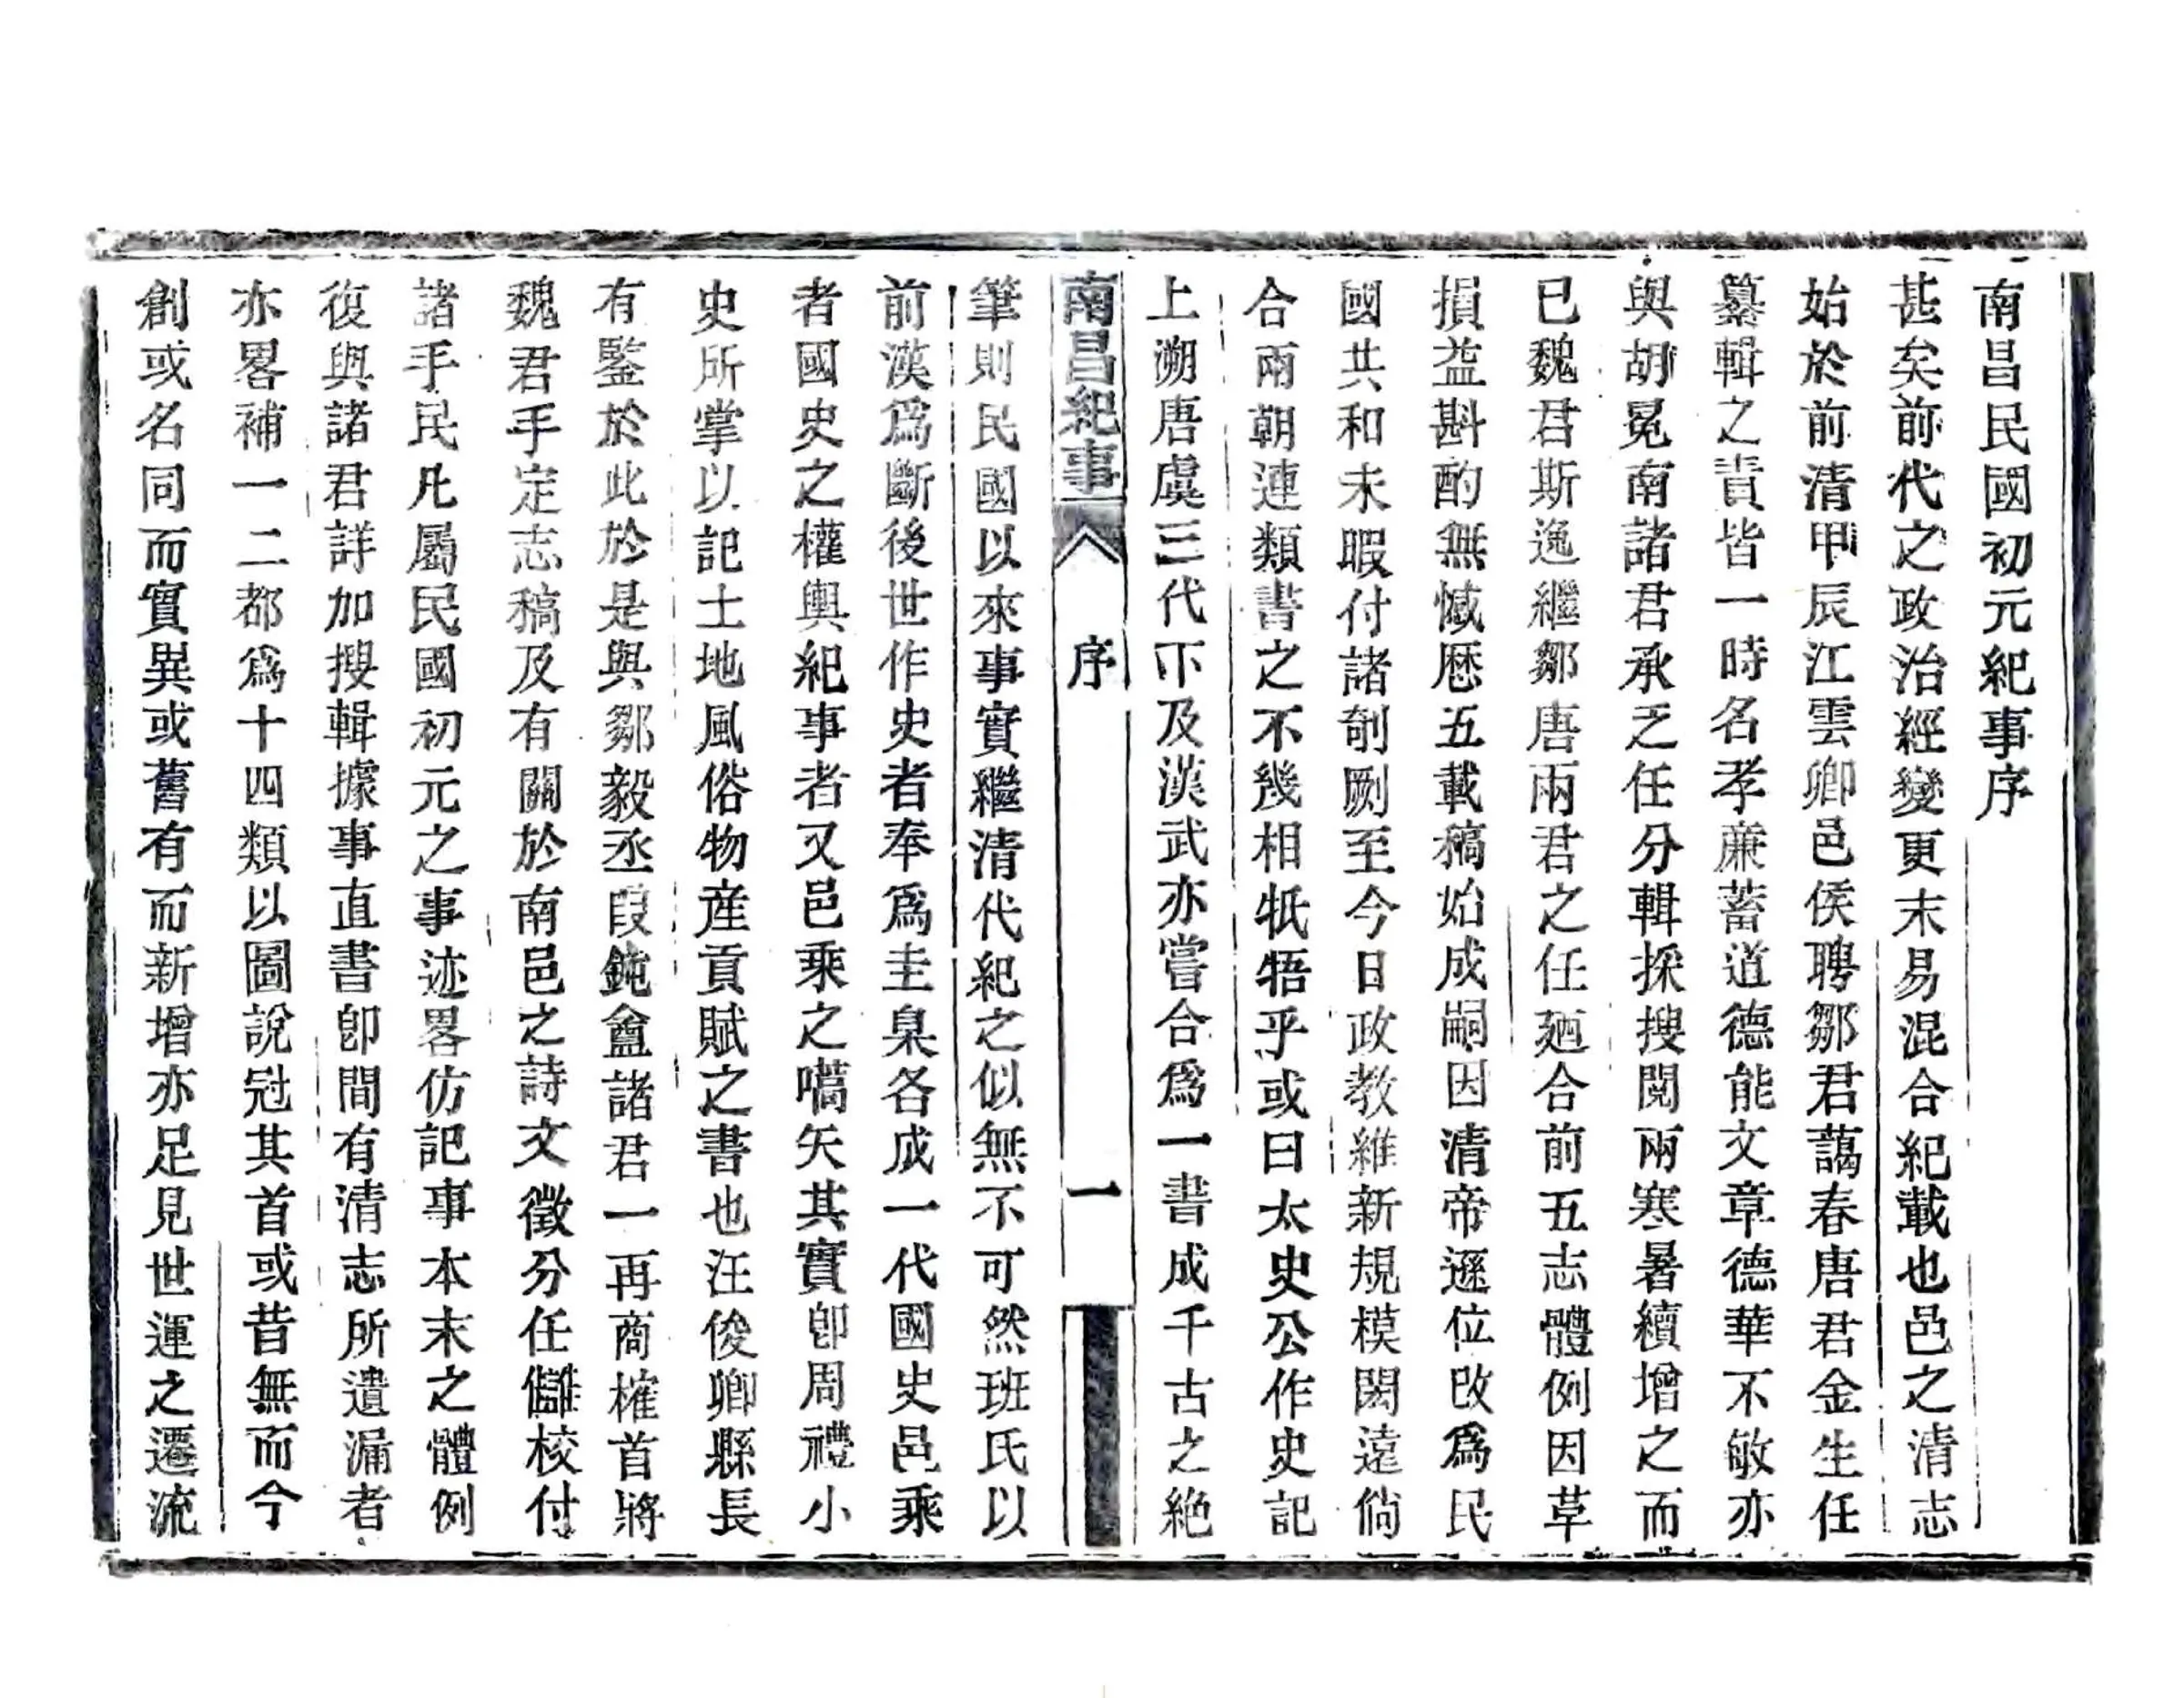 南昌民國初元紀事序
甚矣前代之政治經變更末易混合紀載也邑之清志
始於前清甲辰江雲卿邑侯聘鄒君藹春唐君金生任
纂輯之責皆一時名孝廉蓄道德能文章德華不敏亦
與胡冕南諸君承乏任分輯採搜閱兩寒暑續增之而
已魏君斯逸繼鄒唐兩君之任廼合前五志體例因草
損益斟酌無憾歷五載稿始成嗣因清帝遜位改爲民
國共和未暇付諸剞劂至今日政教維新規模閎遠倘
合兩朝連類書之不幾相牴牾乎或曰太史公作史記
上溯唐虞三代下及漢武亦嘗合爲一書成千古之絶
南昌紀事 序 一
筆則民國以來事實繼清代紀之似無不可然班氏以
前漢爲斷後世作史者奉爲圭臬各成一代國史邑乘
者國史之權輿紀事者又邑乘之嚆矢其實卽周禮小
史所掌以記土地風俗物産貢賦之書也汪俊卿縣長
有鑒於此於是與鄒毅丞段鈍盦諸君一再商榷首將
魏君手定志稿及有關於南邑之詩文徵分任讎校付
諸手民凡屬民國初元之事迹畧仿記事本末之體例
復與諸君詳加搜輯據事直書卽間有清志所遺漏者
亦畧補一二都爲十四類以圖說冠其首或昔無而今
創或名同而實異或舊有而新增亦足見世運之遷流